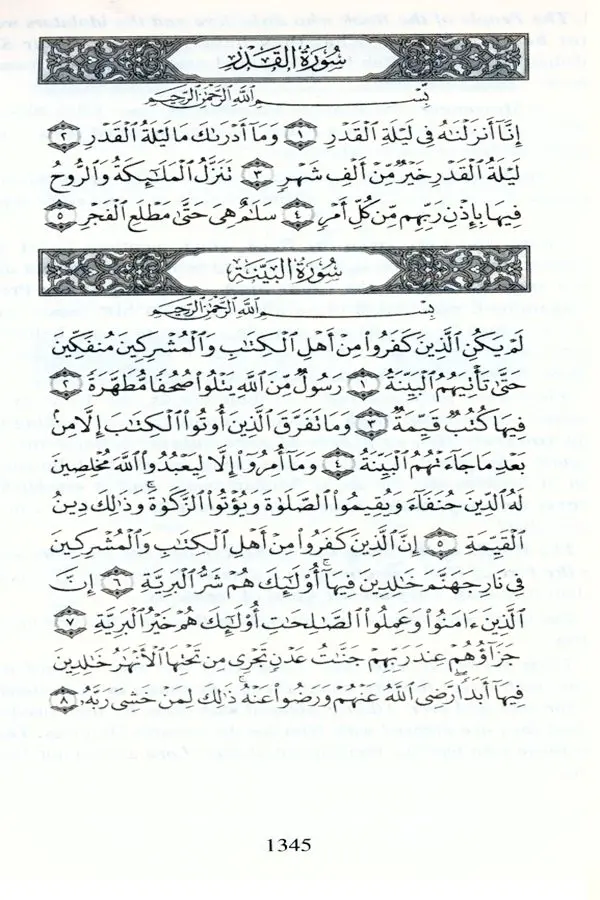 سُورَةُ القَدْرِ
بِسْمِ ٱللَّهِ ٱلرَّحْمَٰنِ ٱلرَّحِيمِ
إِنَّآ أَنزَلْنَٰهُ فِى لَيْلَةِ ٱلْقَدْرِ ١ وَمَآ أَدْرَىٰكَ مَا لَيْلَةُ ٱلْقَدْرِ ٢
لَيْلَةُ ٱلْقَدْرِ خَيْرٌ مِّنْ أَلْفِ شَهْرٍ ٣ تَنَزَّلُ ٱلْمَلَٰٓئِكَةُ وَٱلرُّوحُ
فِيهَا بِإِذْنِ رَبِّهِم مِّن كُلِّ أَمْرٍ ٤ سَلَٰمٌ هِىَ حَتَّىٰ مَطْلَعِ ٱلْفَجْرِ ٥
سُورَةُ البَيِّنَةِ
بِسْمِ ٱللَّهِ ٱلرَّحْمَٰنِ ٱلرَّحِيمِ
لَمْ يَكُنِ ٱلَّذِينَ كَفَرُوا۟ مِنْ أَهْلِ ٱلْكِتَٰبِ وَٱلْمُشْرِكِينَ مُنفَكِّينَ
حَتَّىٰ تَأْتِيَهُمُ ٱلْبَيِّنَةُ ١ رَسُولٌ مِّنَ ٱللَّهِ يَتْلُوا۟ صُحُفًا مُّطَهَّرَةً ٢
فِيهَا كُتُبٌ قَيِّمَةٌ ٣ وَمَا تَفَرَّقَ ٱلَّذِينَ أُوتُوا۟ ٱلْكِتَٰبَ إِلَّا مِنۢ
بَعْدِ مَا جَآءَتْهُمُ ٱلْبَيِّنَةُ ٤ وَمَآ أُمِرُوٓا۟ إِلَّا لِيَعْبُدُوا۟ ٱللَّهَ مُخْلِصِينَ
لَهُ ٱلدِّينَ حُنَفَآءَ وَيُقِيمُوا۟ ٱلصَّلَوٰةَ وَيُؤْتُوا۟ ٱلزَّكَوٰةَ ۚ وَذَٰلِكَ دِينُ
ٱلْقَيِّمَةِ ٥ إِنَّ ٱلَّذِينَ كَفَرُوا۟ مِنْ أَهْلِ ٱلْكِتَٰبِ وَٱلْمُشْرِكِينَ
فِى نَارِ جَهَنَّمَ خَٰلِدِينَ فِيهَآ ۚ أُو۟لَٰٓئِكَ هُمْ شَرُّ ٱلْبَرِيَّةِ ٦ إِنَّ
ٱلَّذِينَ ءَامَنُوا۟ وَعَمِلُوا۟ ٱلصَّٰلِحَٰتِ أُو۟لَٰٓئِكَ هُمْ خَيْرُ ٱلْبَرِيَّةِ ٧
جَزَآؤُهُمْ عِندَ رَبِّهِمْ جَنَّٰتُ عَدْنٍ تَجْرِى مِن تَحْتِهَا ٱلْأَنْهَٰرُ خَٰلِدِينَ
فِيهَآ أَبَدًا ۖ رَّضِىَ ٱللَّهُ عَنْهُمْ وَرَضُوا۟ عَنْهُ ۚ ذَٰلِكَ لِمَنْ خَشِىَ رَبَّهُۥ ٨
1345